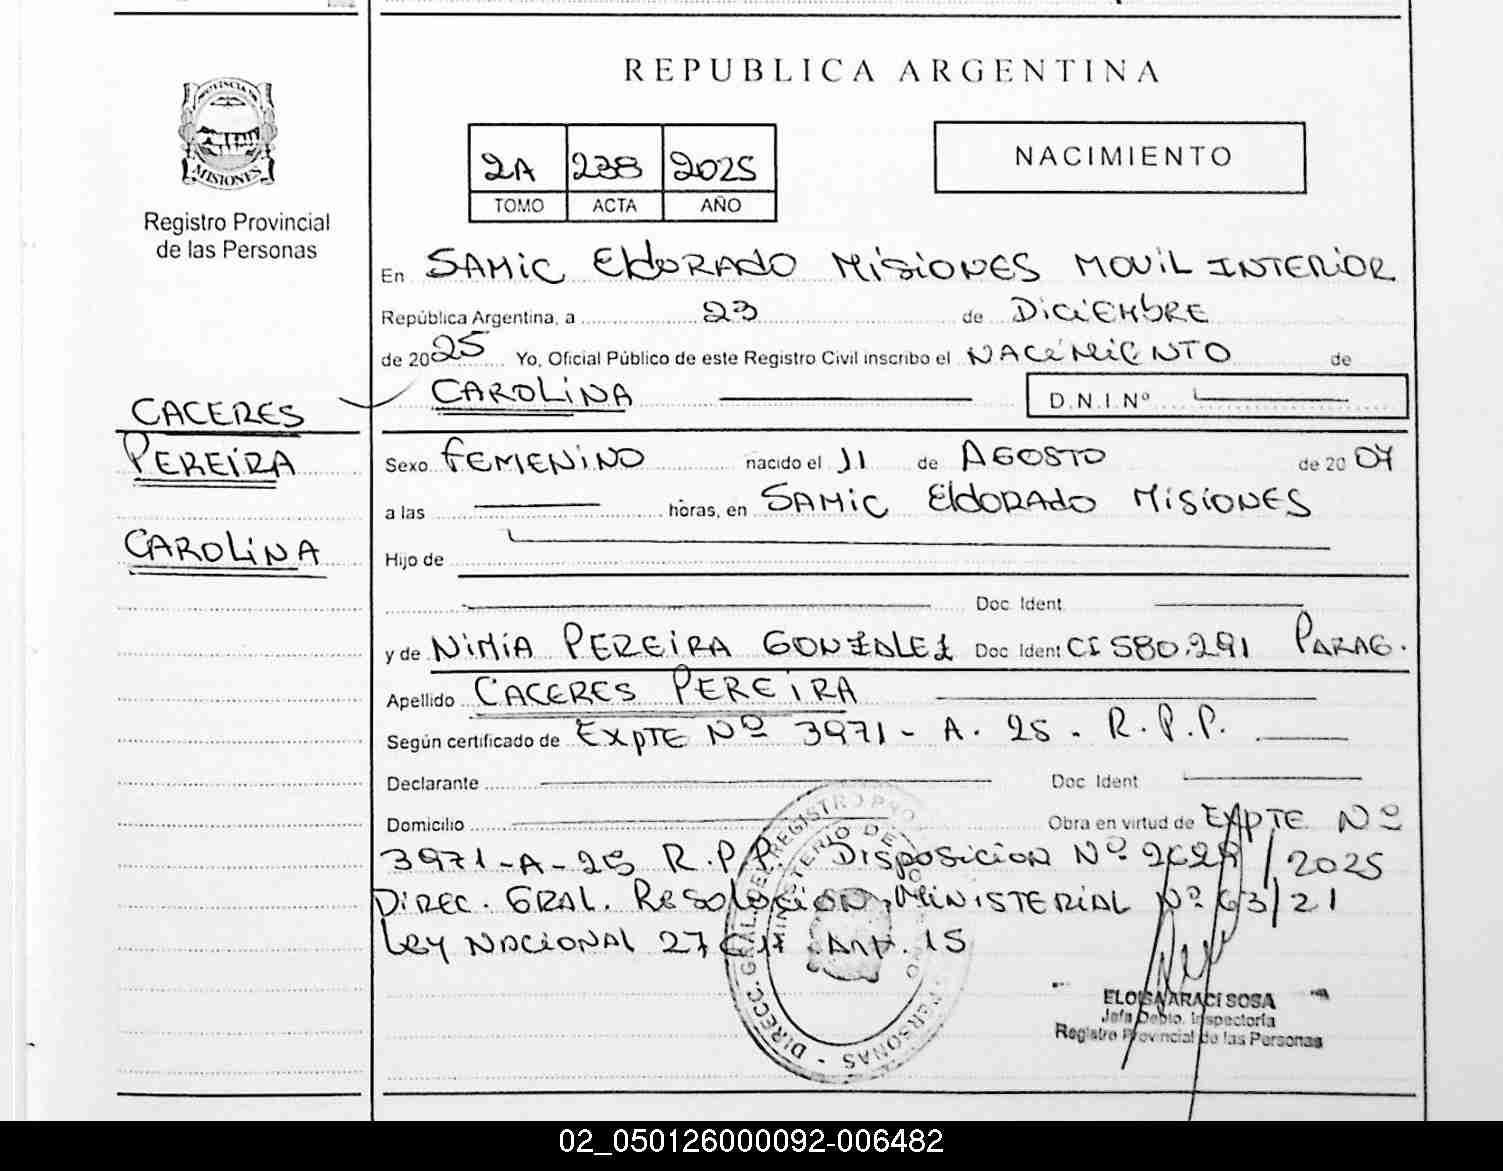 REPUBLICA ARGENTINA
PROVINCIA DE
MISIONES
Registro Provincial
de las Personas
2A 238 2025
TOMO ACTA AÑO
NACIMIENTO
En SAMIC ELDORADO MISIONES MOVIL INTERIOR
República Argentina, a 23 de DICIEMBRE
de 2025 Yo, Oficial Público de este Registro Civil inscribo el NACIMIENTO de
CAROLINA D.N.I.Nº
CACERES
PEREIRA
CAROLINA
Sexo FEMENINO nacido el 11 de AGOSTO de 2007
a las horas, en SAMIC ELDORADO MISIONES
Hijo de
Doc. Ident.
y de NIMIA PEREIRA GONZALEZ Doc. Ident CI 580.291 PARAG.
Apellido CACERES PEREIRA
Según certificado de EXPTE Nº 3971 - A. 25 - R.P.P.
Declarante Doc. Ident
Domicilio Obra en virtud de EXPTE Nº
3971-A-25 R.P.P. DISPOSICION Nº / 2025
DIREC. GRAL. RESOLUCION MINISTERIAL Nº 63/21
LEY NACIONAL ART. 15
DIRECC. GRAL. DEL REGISTRO PERSONAS
MINISTERIO DE
ELOISA ARACI SOSA
Jefa Depto. Inspectoría
Registro Provincial de las Personas
02_050126000092-006482